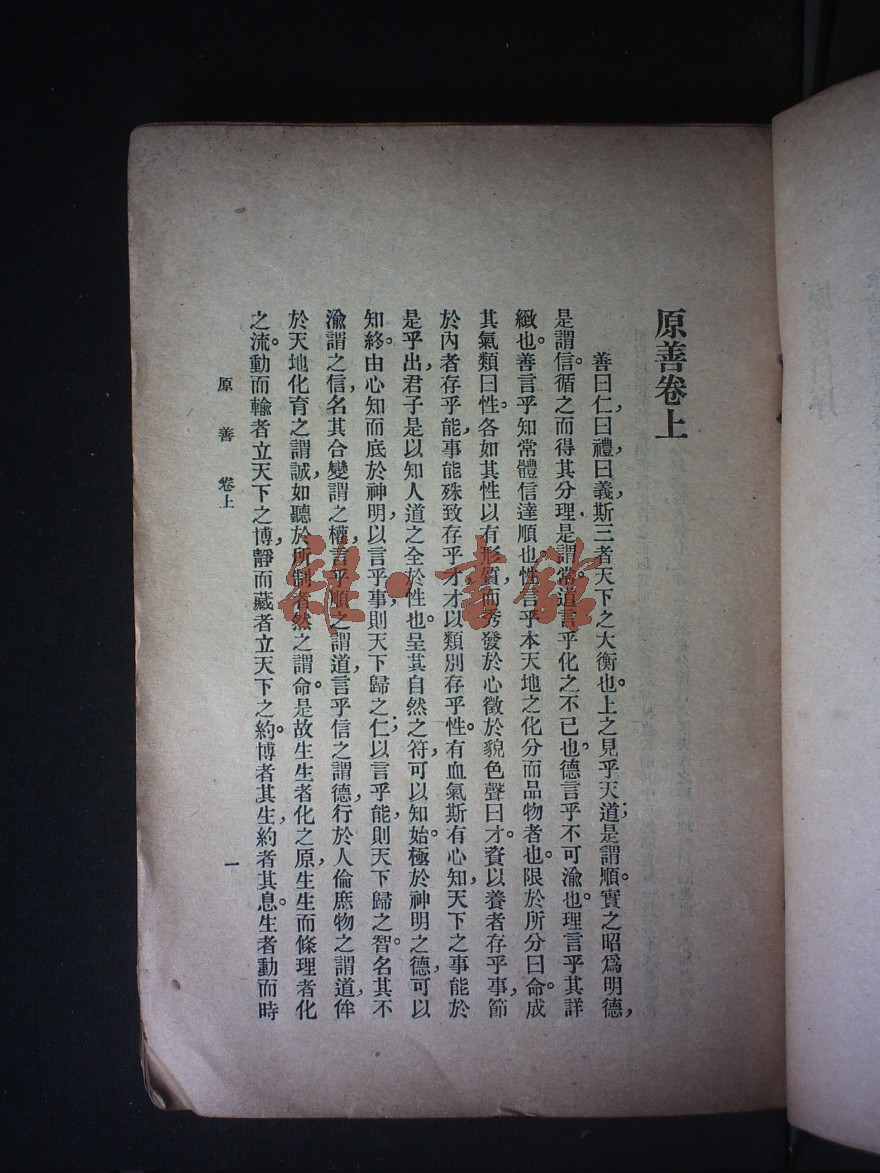 原善卷上
善曰仁，曰禮，曰義，斯三者天下之大衡也。上之見乎天道；是謂順。實之昭爲明德，
是謂信。循之而得其分理，是謂常。道言乎化之不已也。德言乎不可渝也。理言乎其詳
緻也。善言乎知常體信達順也。性言乎本天地之化分而品物者也。限於所分曰命。成
其氣類曰性。各如其性以有形質，而秀發於心，徵於貌色聲曰才。資以養者存乎事，節
於內者存乎能，事能殊致存乎才，才以類別存乎性。有血氣斯有心知，天下之事能於
是乎出，君子是以知人道之全於性也。呈其自然之符，可以知始。極於神明之德，可以
知終。由心知而底於神明，以言乎事，則天下歸之仁；以言乎能，則天下歸之智。名其不
渝謂之信，名其合變謂之權，言乎順之謂道，言乎信之謂德，行於人倫庶物之謂道，侔
於天地化育之謂誠，如聽於所制者然之謂命。是故生生者化之原，生生而條理者化
之流。動而輸者立天下之博，靜而藏者立天下之約。博者其生，約者其息。生者動而時
原善 卷上
一
雜·書館